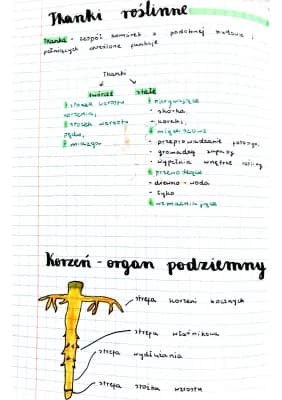 Tkanki roślinne
Tkanka - zespół komórek o podobnej budowie i
pełniących określone funkcje
Tkanki
twórcze
stałe
stożek wzrostu
korzenia,
stożek wzrostu
pędu,
miazga
okrywające
- skórka
- korek,
miękiszowe
- przeprowadzanie
- gromadzą zapasy
- wypełnia wnętrze rośliny
przewodzące
- drewno - woda
- łyko
wzmacniające
Korzeń - organ podziemny
strefa korzeni bocznych
strefa włośnikowa
strefa wydłużania
strefa stożka wzrostu